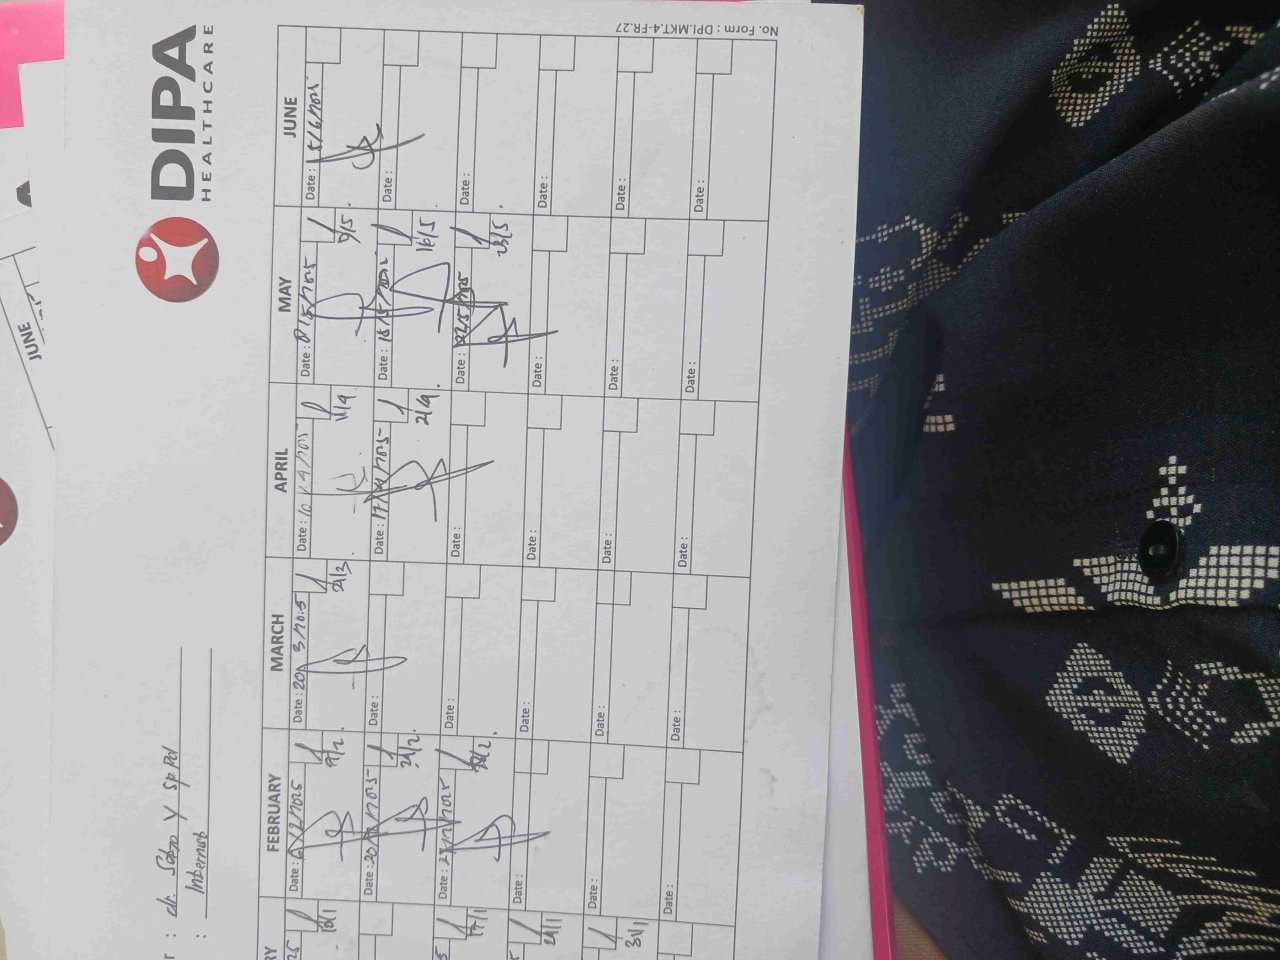 DIPA
HEALTHCARE
: dr. Sabro Y SpPd
: Internal
FEBRUARY MARCH APRIL MAY JUNE
Date : Date : 20/3/2025 Date : 10/4/2025 Date : 8/5/2025 Date : 5/6/2025
21/3 11/4 9/5
Date : 20/2/2025 Date : Date : 17/4/2025 Date : 15/5/2025 Date :
21/2 16/5
Date : 27/2/2025 Date : Date : Date : 22/5/2025 Date :
28/2 23/5
Date : Date : Date : Date : Date :
Date : Date : Date : Date : Date :
Date : Date : Date : Date : Date :
17/1
24/1
31/1
No. Form : DPI.MKT.4-FR.27
JUNE